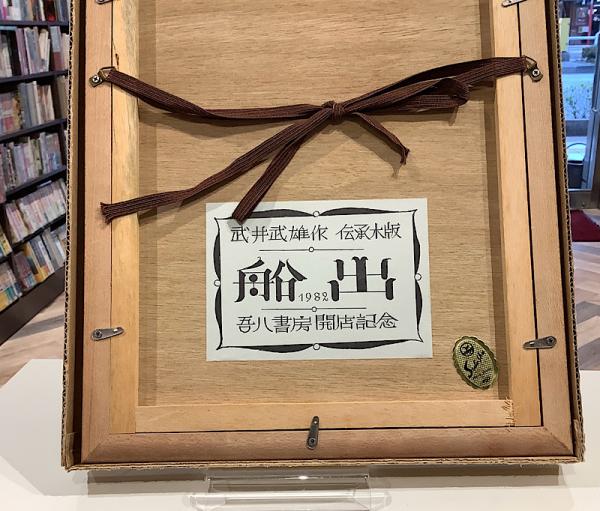 武井武雄作 伝承木版
船出
1982
吾八書房開店記念